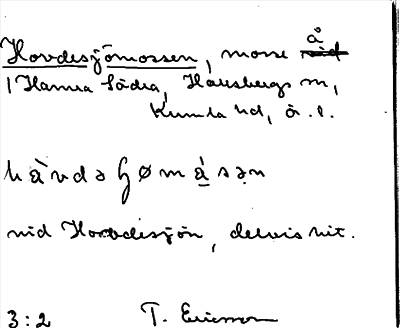 Hovdesjömossen, mosse å
1 Hamra Södra, Hallsbergs sn,
Kumla hd, ö. l.
hàvdəʃømásən
vid Hovdesjön, delvis hit.
3:2 T. Ericsson